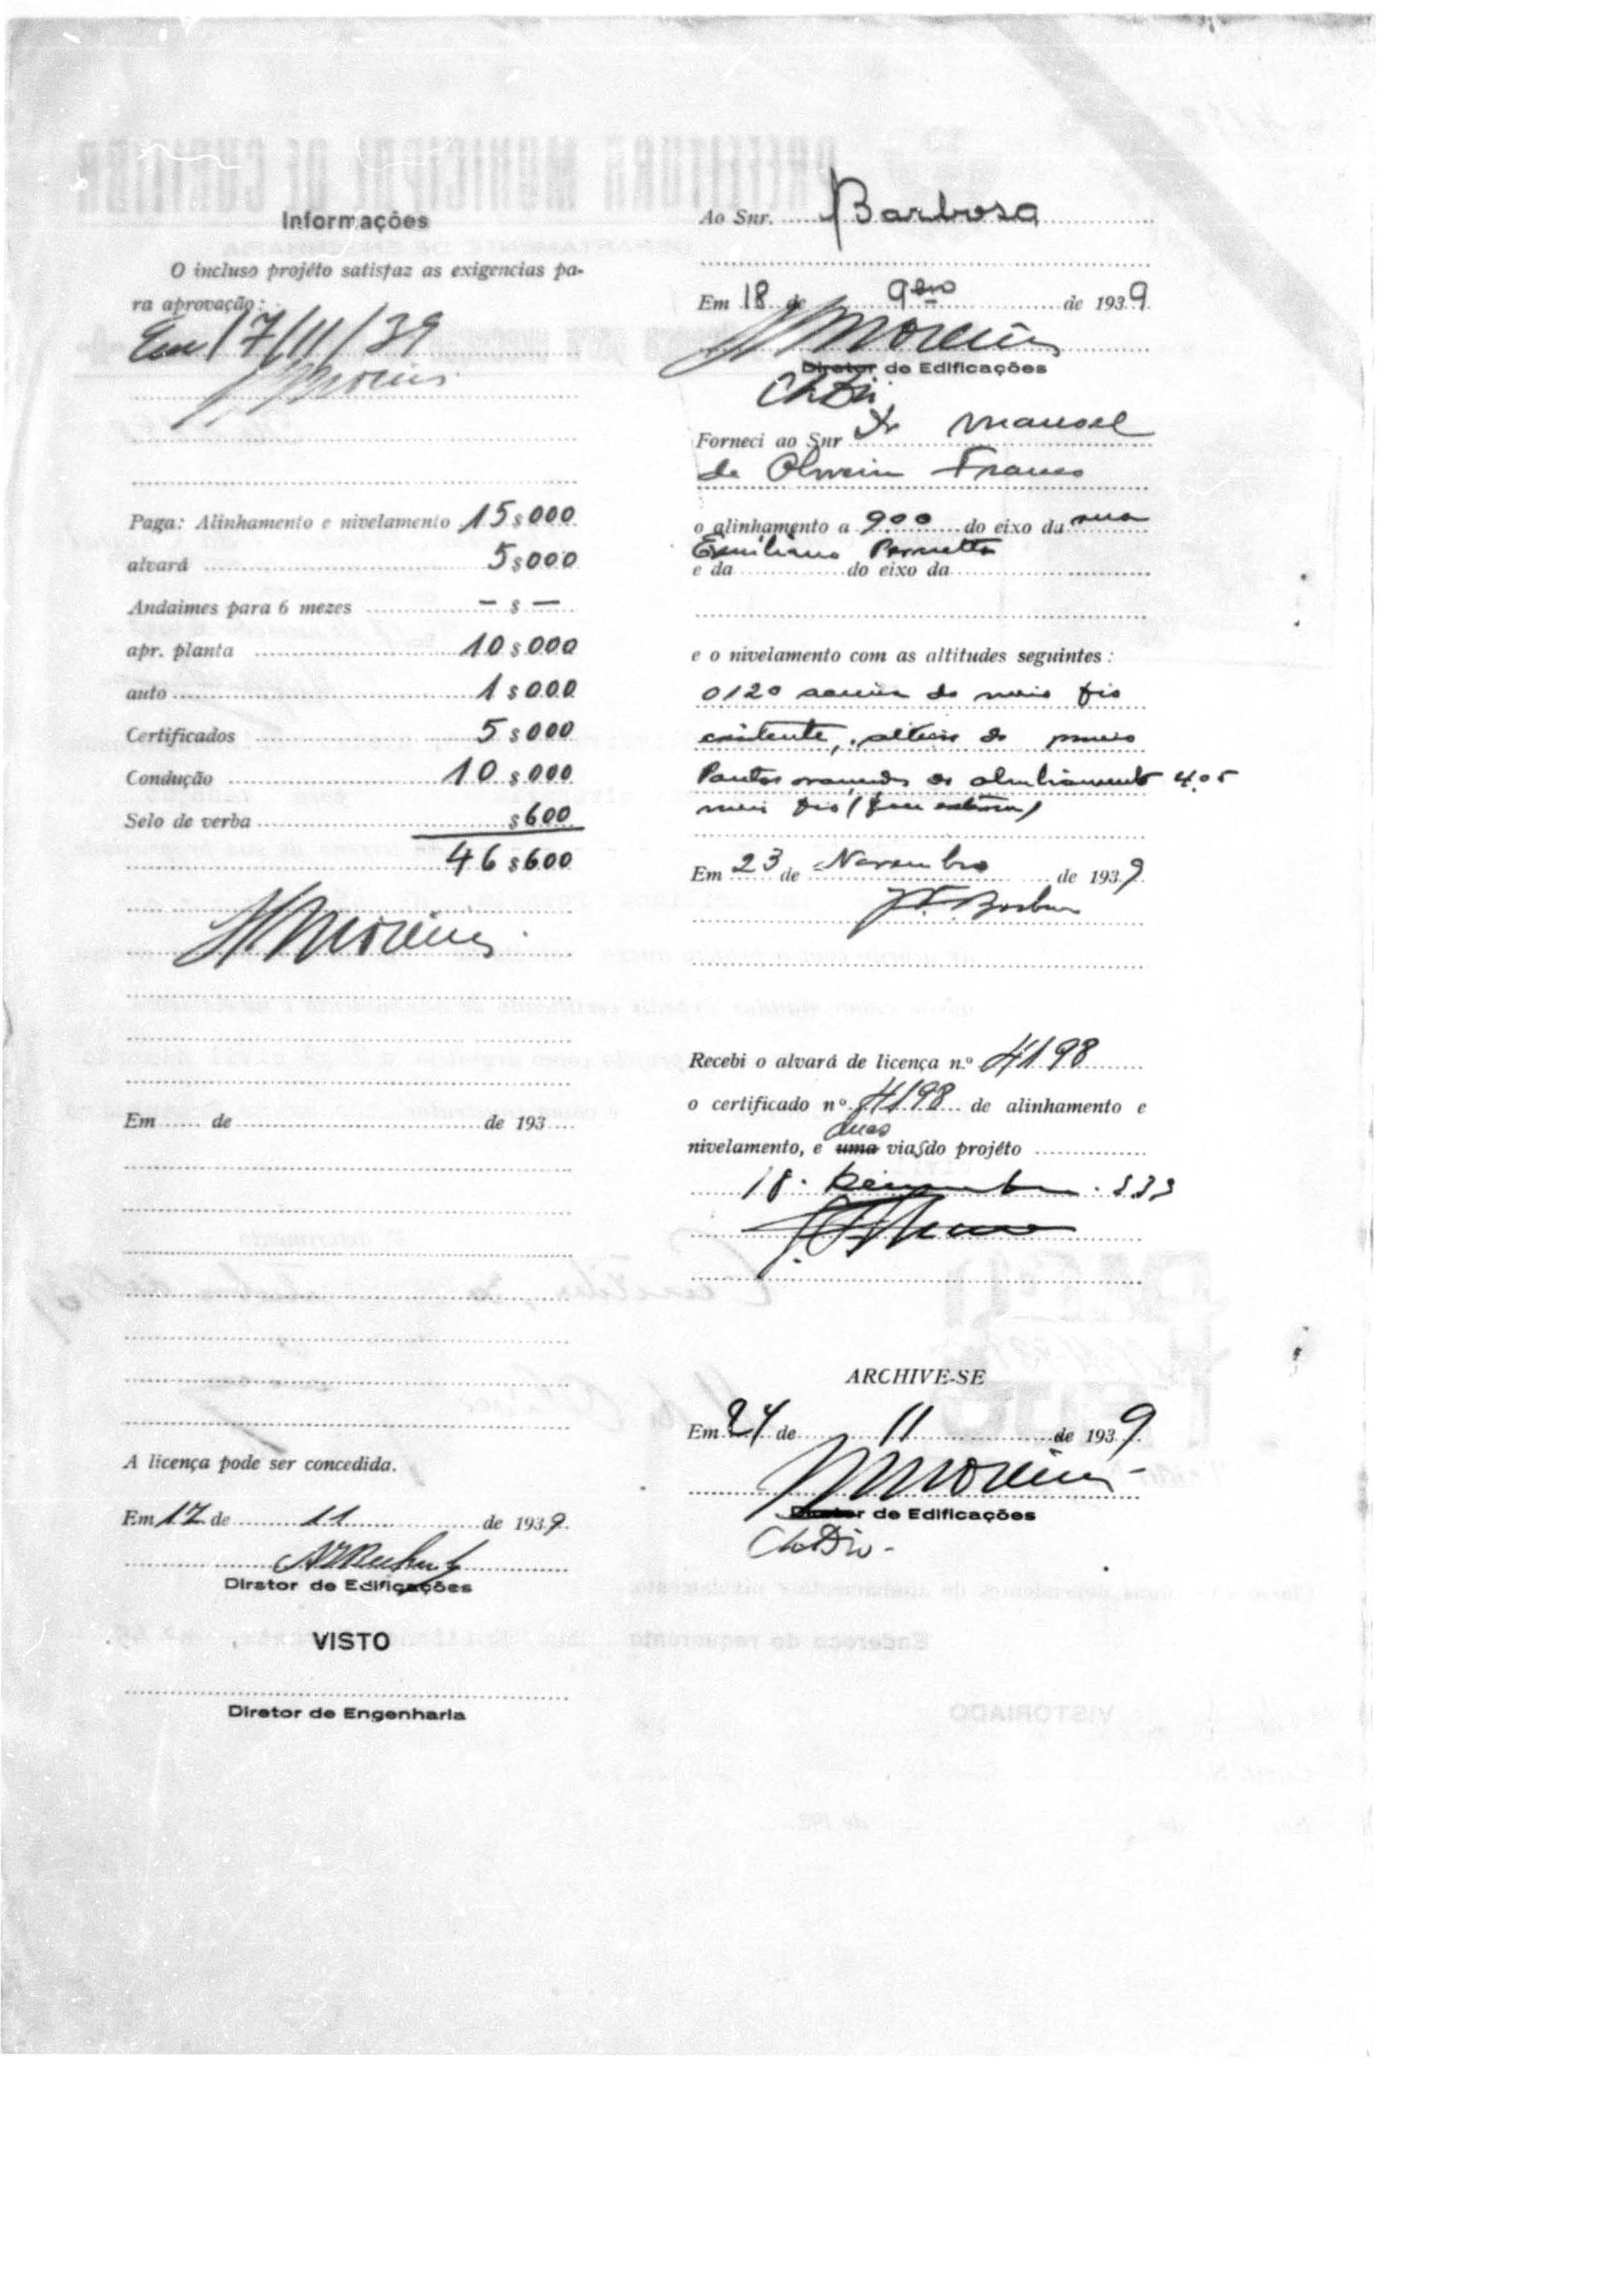 Informações
O incluso projéto satisfaz as exigencias pa-
ra aprovação:
Em 17/11/39
Paga: Alinhamento e nivelamento 15$000
alvará 5$000
Andaimes para 6 mezes — $ —
apr. planta 10$000
auto 1$000
Certificados 5$000
Condução 10$000
Selo de verba $600
46$600
Em de de 193
A licença pode ser concedida.
Em 17 de 11 de 1939.
Diretor de Edificações
VISTO
Diretor de Engenharia
Ao Snr. Barbosa
Em 18 de 9bro de 1939.
Diretor de Edificações
Forneci ao Snr Dr Manoel
de Oliveira Franco
o alinhamento a 900 do eixo da rua
Emiliano Pernetta
e da do eixo da
e o nivelamento com as altitudes seguintes:
0120 acima do meio fio
existente, do
do alinhamento 4.05
meio fio
Em 23 de Novembro de 1939.
Recebi o alvará de licença n.º 4198
o certificado nº 4198 de alinhamento e
nivelamento, e uma duas vias do projéto
18. Dezembro . 939
ARCHIVE-SE
Em 24 de 11 de 1939.
Moreira
Diretor de Edificações
PREFEITURA MUNICIPAL DE CURITIBA
Endereço do requerente
VISTORIADO